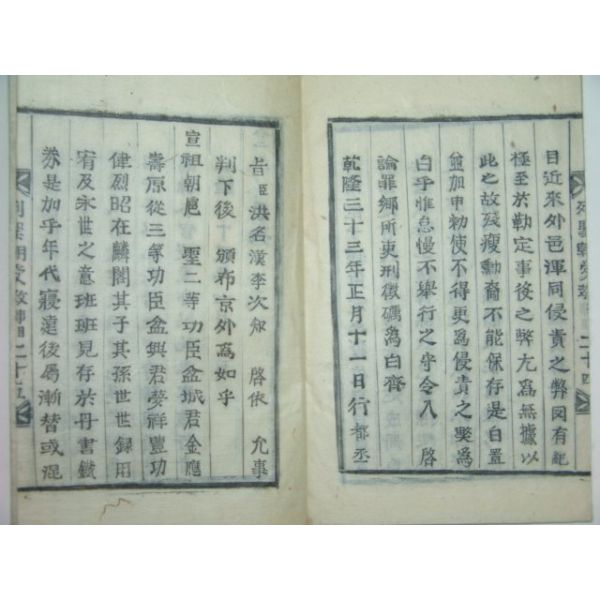 目近來外邑渾同侵責之弊罔有紀
極至於勒定事後之弊尤爲無據以
此之故殘瘦勳裔不能保存是白置
益加申勅使不得更爲侵責之弊爲
白乎惟怠慢不擧行之守令入 啓
論罪鄕所吏刑徵礪爲白齊
乾隆三十三年正月十一日行都丞
旨臣洪名漢李次知 啓依 允事
判下後 頒布京外爲如乎
宣祖朝扈 聖二等功臣盆城君金應
壽原從三等功臣盆興君夢祥豐功
偉烈昭在麟閣其子其孫世世錄用
宥及永世之意班班見存於丹書鐵
券是加乎年代寢遠後屬漸替或混
二十五